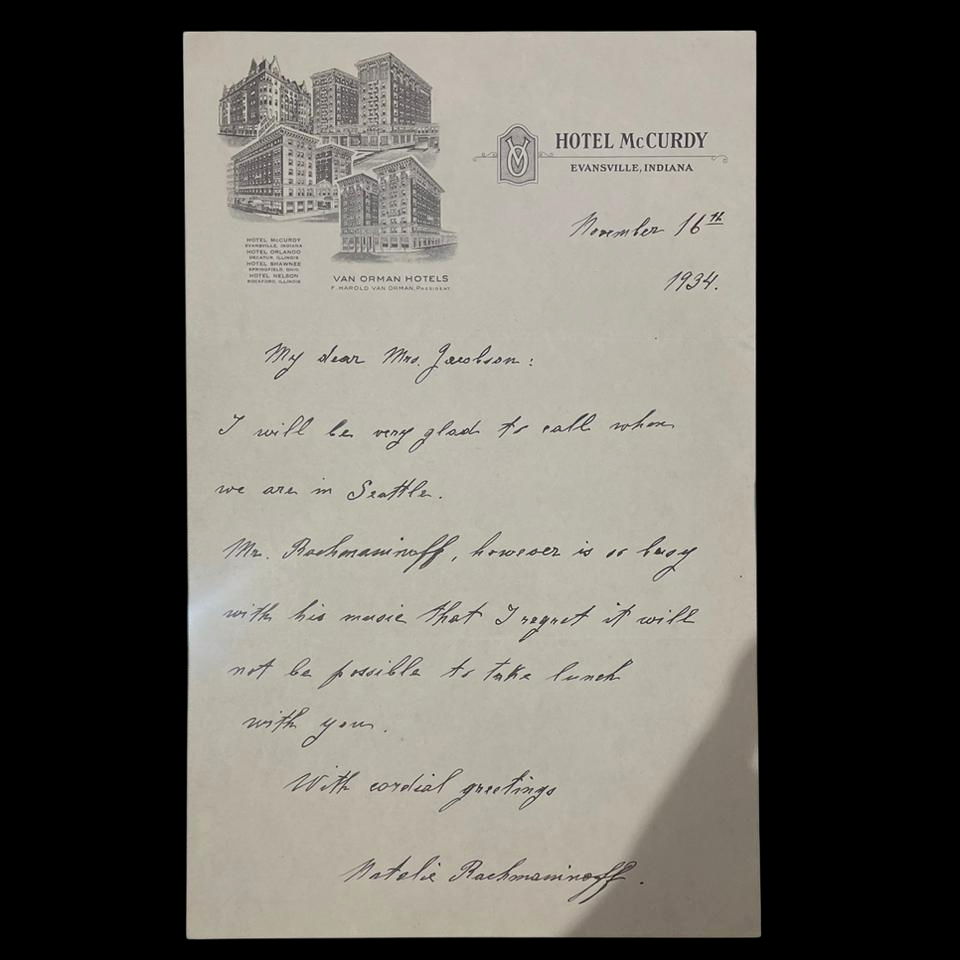 HOTEL McCURDY
EVANSVILLE, INDIANA
HOTEL McCURDY
EVANSVILLE, INDIANA
HOTEL ORLANDO
DECATUR, ILLINOIS
HOTEL SHAWNEE
SPRINGFIELD, OHIO
HOTEL NELSON
ROCKFORD, ILLINOIS
VAN ORMAN HOTELS
F. HAROLD VAN ORMAN, PRESIDENT
November 16th
1934.
My dear Mrs. Jacobson:
I will be very glad to call when
we are in Seattle.
Mr. Rachmaninoff, however is so busy
with his music that I regret it will
not be possible to take lunch
with you.
With cordial greetings
Natalie Rachmaninoff.